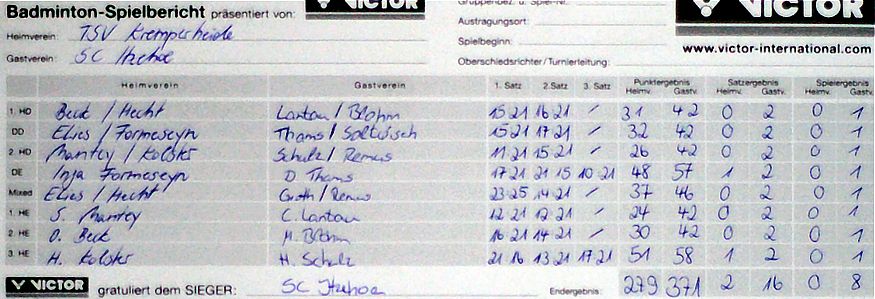 Badminton-Spielbericht präsentiert von: VICTOR Gruppenbez. u. Spiel-Nr. VICTOR
Heimverein: TSV Kremperheide Austragungsort:
Spielbeginn: www.victor-international.com
Gastverein: SC Itzehoe Oberschiedsrichter/Turnierleitung:
Heimverein Gastverein 1. Satz 2. Satz 3. Satz Punktergebnis Heimv. Gastv. Satzergebnis Heimv. Gastv. Spielergebnis Heimv. Gastv.
1. HD Beck / Hecht Lantau / Blohm 15 21 16 21 / 31 42 0 2 0 1
DD Elies / Formeseyn Thams / 15 21 17 21 / 32 42 0 2 0 1
2. HD Mantey / Kolster Schulz / Remus 11 21 15 21 / 26 42 0 2 0 1
DE Inja Formeseyn D Thams 17 21 21 15 10 21 48 57 1 2 0 1
Mixed Elies / Hecht Groth / Remus 23 25 14 21 / 37 46 0 2 0 1
1. HE S. Mantey C. Lantau 12 21 12 21 / 24 42 0 2 0 1
2. HE O. Beck M. Blohm 16 21 14 21 / 30 42 0 2 0 1
3. HE H. Kolster H. Schulz 21 16 13 21 17 21 51 58 1 2 0 1
VICTOR gratuliert dem SIEGER: SC Itzehoe Endergebnis: 279 371 2 16 0 8